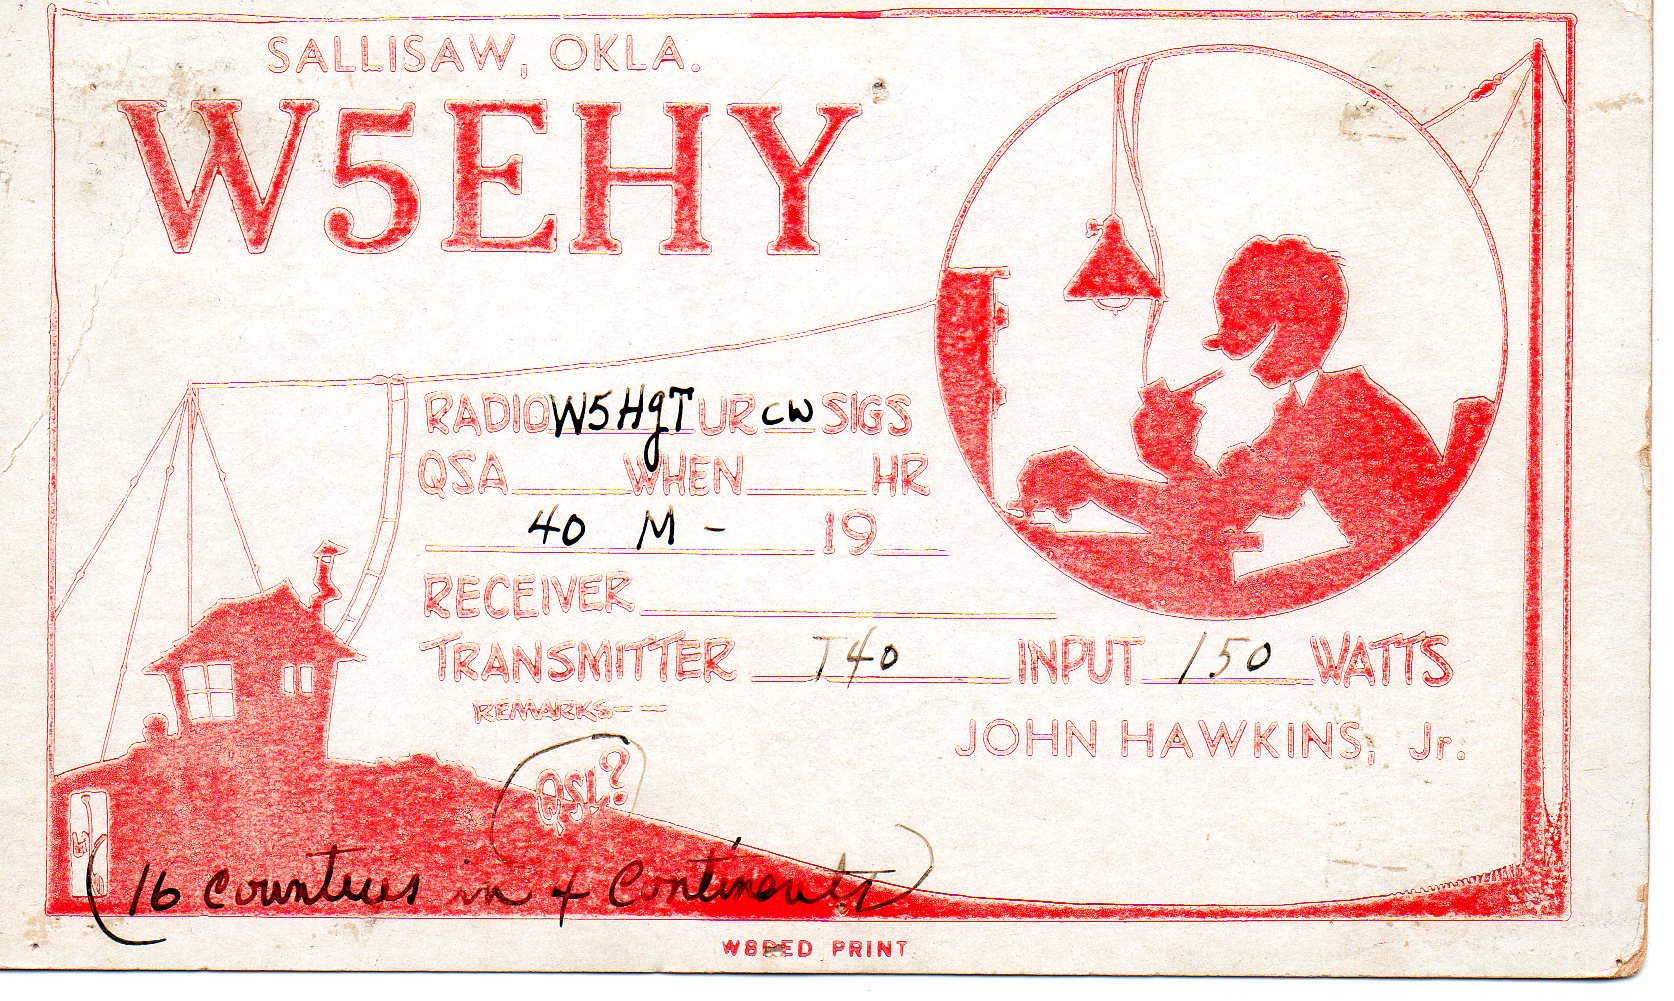 SALLISAW, OKLA.
W5EHY
RADIO W5HgT UR CW SIGS
QSA____ WHEN____ HR
40 M - 19__
RECEIVER
TRANSMITTER T40 INPUT 150 WATTS
REMARKS--
JOHN HAWKINS, Jr.
QSL?
(16 Countries in 4 Continents)
W8DED PRINT